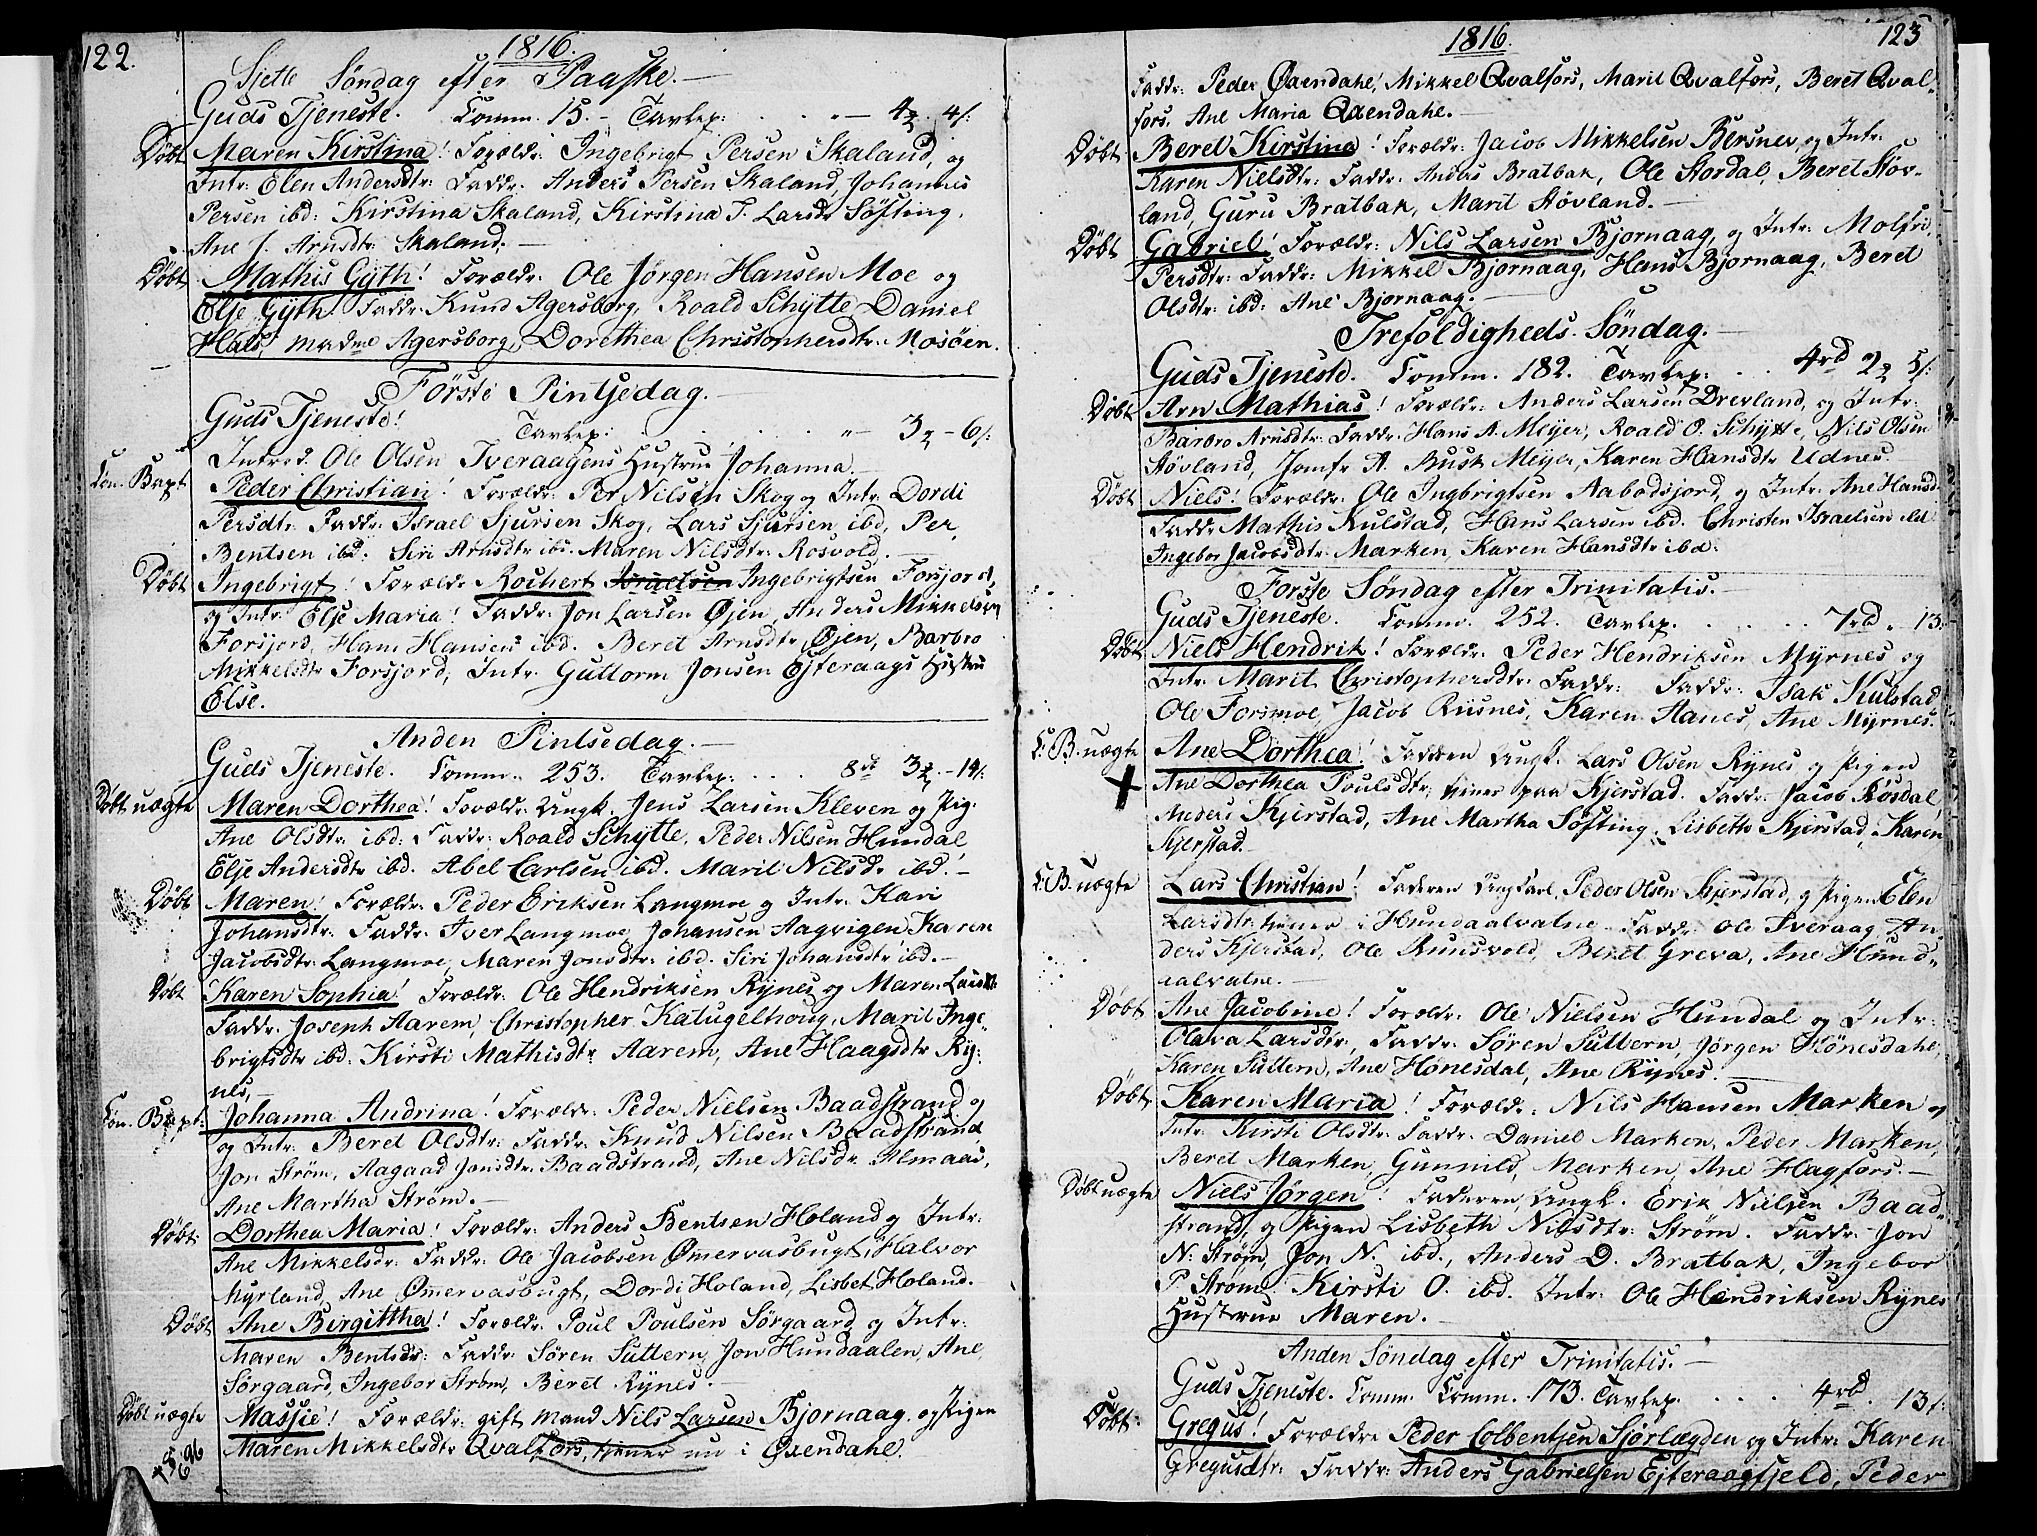 122.
1816.
Sjette Søndag efter Paaske.
Guds Tjeneste. Comm. 15. Tavlep: 4 4/:
Døbt Maren Kirstina! Forældr: Ingebrigt Persen Skaland, og
Intr: Elen Andersdtr: Faddr: Anders Persen Skaland, Johannis
Persen ibd: Kirstina Skaland, Kirstina J. Larsdr Søfting,
Ane J. Arnsdtr Skaland.
Døbt Mathis Gyth! Forældr: Ole Jørgen Hansen Moe og
Else Gyth. Faddr: Knud Agersborg, Roald Schytte, Daniel
Hals, Madme Agersborg, Dorethea Christophersdtr: Mosøen.
Förste Pintsedag.
Guds Tjeneste!
Tavlep: 3 - 6/:
Introd. Ole Olsen Iveraagens Hustrue Johanna.
Con. Bapt Peder Christian! Forældr: Per Nilsen Skog og Intr: Dordi
Persdtr: Faddr: Israel Sjursen Skog, Lars Sjursen ibd, Per
Bentsen ibd: Siri Arnsdtr ibd. Maren Nilsdtr: Rosvold.
Døbt Ingebrigt! Forældr: Rochert Israelsen Ingebrigtsen Forsjord,
og Intr: Else Maria! Faddr: Jon Larsen Øjen, Anders Mikkelsen
Forsjord, Hans Hansen ibd. Beret Arnsdtr Øjen, Barbro
Mikkelsdtr Forsjord, Intr: Guttorm Jonsen Efteraags Hustru
Else.
Anden Pintsedag.
Guds Tjeneste. Comm. 253. Tavlep: 8 3 - 14/:
Døbt uægte Maren Dorthea! Forældr: Ungk. Jens Larsen Kleven og Pig.
Ane Olsdtr ibd: Faddr: Roald Schytte, Peder Nilsen Hundal
Else Andersdtr ibd. Abel Carlsen ibd. Marit Nilsdr ibd.
Døbt Maren! Forældr: Peder Eriksen Langmoe og Intr: Kari
Johansdtr: Faddr: Iver Langmoe, Johansen Aagvigen, Karen
Jacobsdtr: Langmoe, Maren Jonsdtr: ibd. Siri Johansdtr ibd.
Døbt Karen Sophia! Forældr: Ole Hendriksen Rynes og Maren Larsdtr
Faddr: Joseph Aarem, Christopher Katugelhoug, Marit Inge-
brigtsdtr ibd: Kirsti Mathisdtr Aarem, Ane Haagsdtr Ry-
nes.
Con. Bapt: Johanna Andrina! Forældr: Peder Nielsen Baadstrand og
og Intr: Beret Olsdtr: Faddr: Knud Nilsen Baadstrand
Jon Strøm, Aagaad Jonsdtr: Baadstrand, Ane Nilsdr Almaas,
Ane Martha Strøm.
Døbt: Dorthea Maria! Forældr: Anders Bentsen Holand og Intr:
Ane Mikkelsdr: Faddr: Ole Jacobsen Ømervasbugt, Halvor
Myrland, Ane Ømervasbugt, Dordi Holand, Lisbet Holand.
Døbt Ane Birgittha! Forældr: Poul Poulsen Sørgaard og Intr:
Maren Bentsdr: Faddr: Søren Suttern, Jon Hundaalen, Ane
Sørgaard, Ingebor Strøm, Beret Rynes.
Døbt uægte Massie! Forældr: gift Mand Nils Larsen Bjornaag og Pigen
Maren Mikkelsdtr Qvalfors, tjener nu i Øxendahl.
123
1816.
Faddr: Peder Øxendahl, Mikkel Qvalfors, Marit Qvalfors, Beret Qval-
fors, Ane Maria Øxendahl.
Døbt Beret Kirstina! Forældr: Jacob Mikkelsen Bersnev og Intr:
Karen Nielsdtr: Faddr: Anders Bratbak, Ole Stordal, Beret Støv-
land, Guru Bratbak, Marit Støvland.
Døbt Gabriel! Forældr: Nils Larsen Bjornaag, og Intr: Molfri,
Persdtr: Faddr: Mikkel Bjornaag, Hans Bjornaag, Beret
Olsdtr: ibd: Ane Bjornaag.
Trefoldigheds Søndag.
Guds Tjeneste. Comm. 182. Tavlep: 4rd 2 5/:
Døbt Arn Mathias! Forældr: Anders Larsen Drevland, og Intr:
Barbro Arnsdtr: Faddr: Hans A. Meijer, Roald O. Schytte, Nils Olsen
Støvland, Jomfr A. Busk Meijer, Karen Hansdtr Udnes.
Døbt Niels! Forældr: Ole Ingbrigtsen Aabodsjord, og Intr: Ane Hansd.
Faddr: Mathis Kulstad, Hans Larsen ibd. Christen Israelsen ibd
Ingebor Jacobsdtr: Marken, Karen Hansdtr ibd.
Forste Søndag efter Trinitatis.
Guds Tjeneste. Comm. 252. Tavlep. 7rd. 13.
Døbt Niels Hendrik! Forældr: Peder Hendriksen Myrnes og
Intr: Marit Christophersdtr: Faddr: Faddr: Isak Kulstad,
Ole Forsmoe, Jacob Riisnes, Karen Aanes, Ane Myrnes.
C. B. uægte Ane Dorthea! Faderen Ungk. Lars Olsen Rynes og Pigen
Ane Dorthea Poulsdtr, tjener paa Kjerstad. Faddr: Jacob Rosdal,
Anders Kjerstad, Ane Martha Søfting, Lisbeth Kjerstad, Karen
Kjerstad.
C. B. uægte Lars Christian! Faderen Ungkarl Peder Olsen Kjerstad, og Pigen Elen
Larsdtr, tjener i Hundaalvatne. Faddr: Ole Iveraag, An-
ders Kjerstad, Ole Ruusvold, Beret Greva, Ane Hund-
aalvatne.
Døbt Ane Jacobine! Forældr: Ole Nielsen Hundal og Intr:
Olava Larsdtr, Faddr: Søren Suttern, Jørgen Hønesdahl,
Karen Suttern, Ane Hønesdal, Ane Rynes.
Døbt Karen Maria! Foræld: Nils Hansen Marken og
Intr: Kirsti Olsdtr: Faddr: Daniel Marken, Peder Marken,
Beret Marken, Gunnild Marken, Ane Hagfors.
Døbt uægte Niels Jørgen! Faderen Ungk. Erik Nielsen Baad-
strand, og Pigen Lisbeth Nilsdtr: Strøm. Faddr: Jon
N. Strøm, Jon N. ibd., Anders D. Bratbak, Ingebor
P. Strøm. Kirsti O. ibd. Intr: Ole Hendriksen Rynes
Hustrue Maren.
Anden Søndag efter Trinitatis.
Guds Tjeneste. Comm. Comm. 173. Tavlep. 4rd. 13/:
Døbt: Gregus! Forældre Peder Colbentsen Sjørlægden og Intr: Karen
Gregusdtr: Faddr: Anders Gabrielsen Efteraagfjeld, Peder